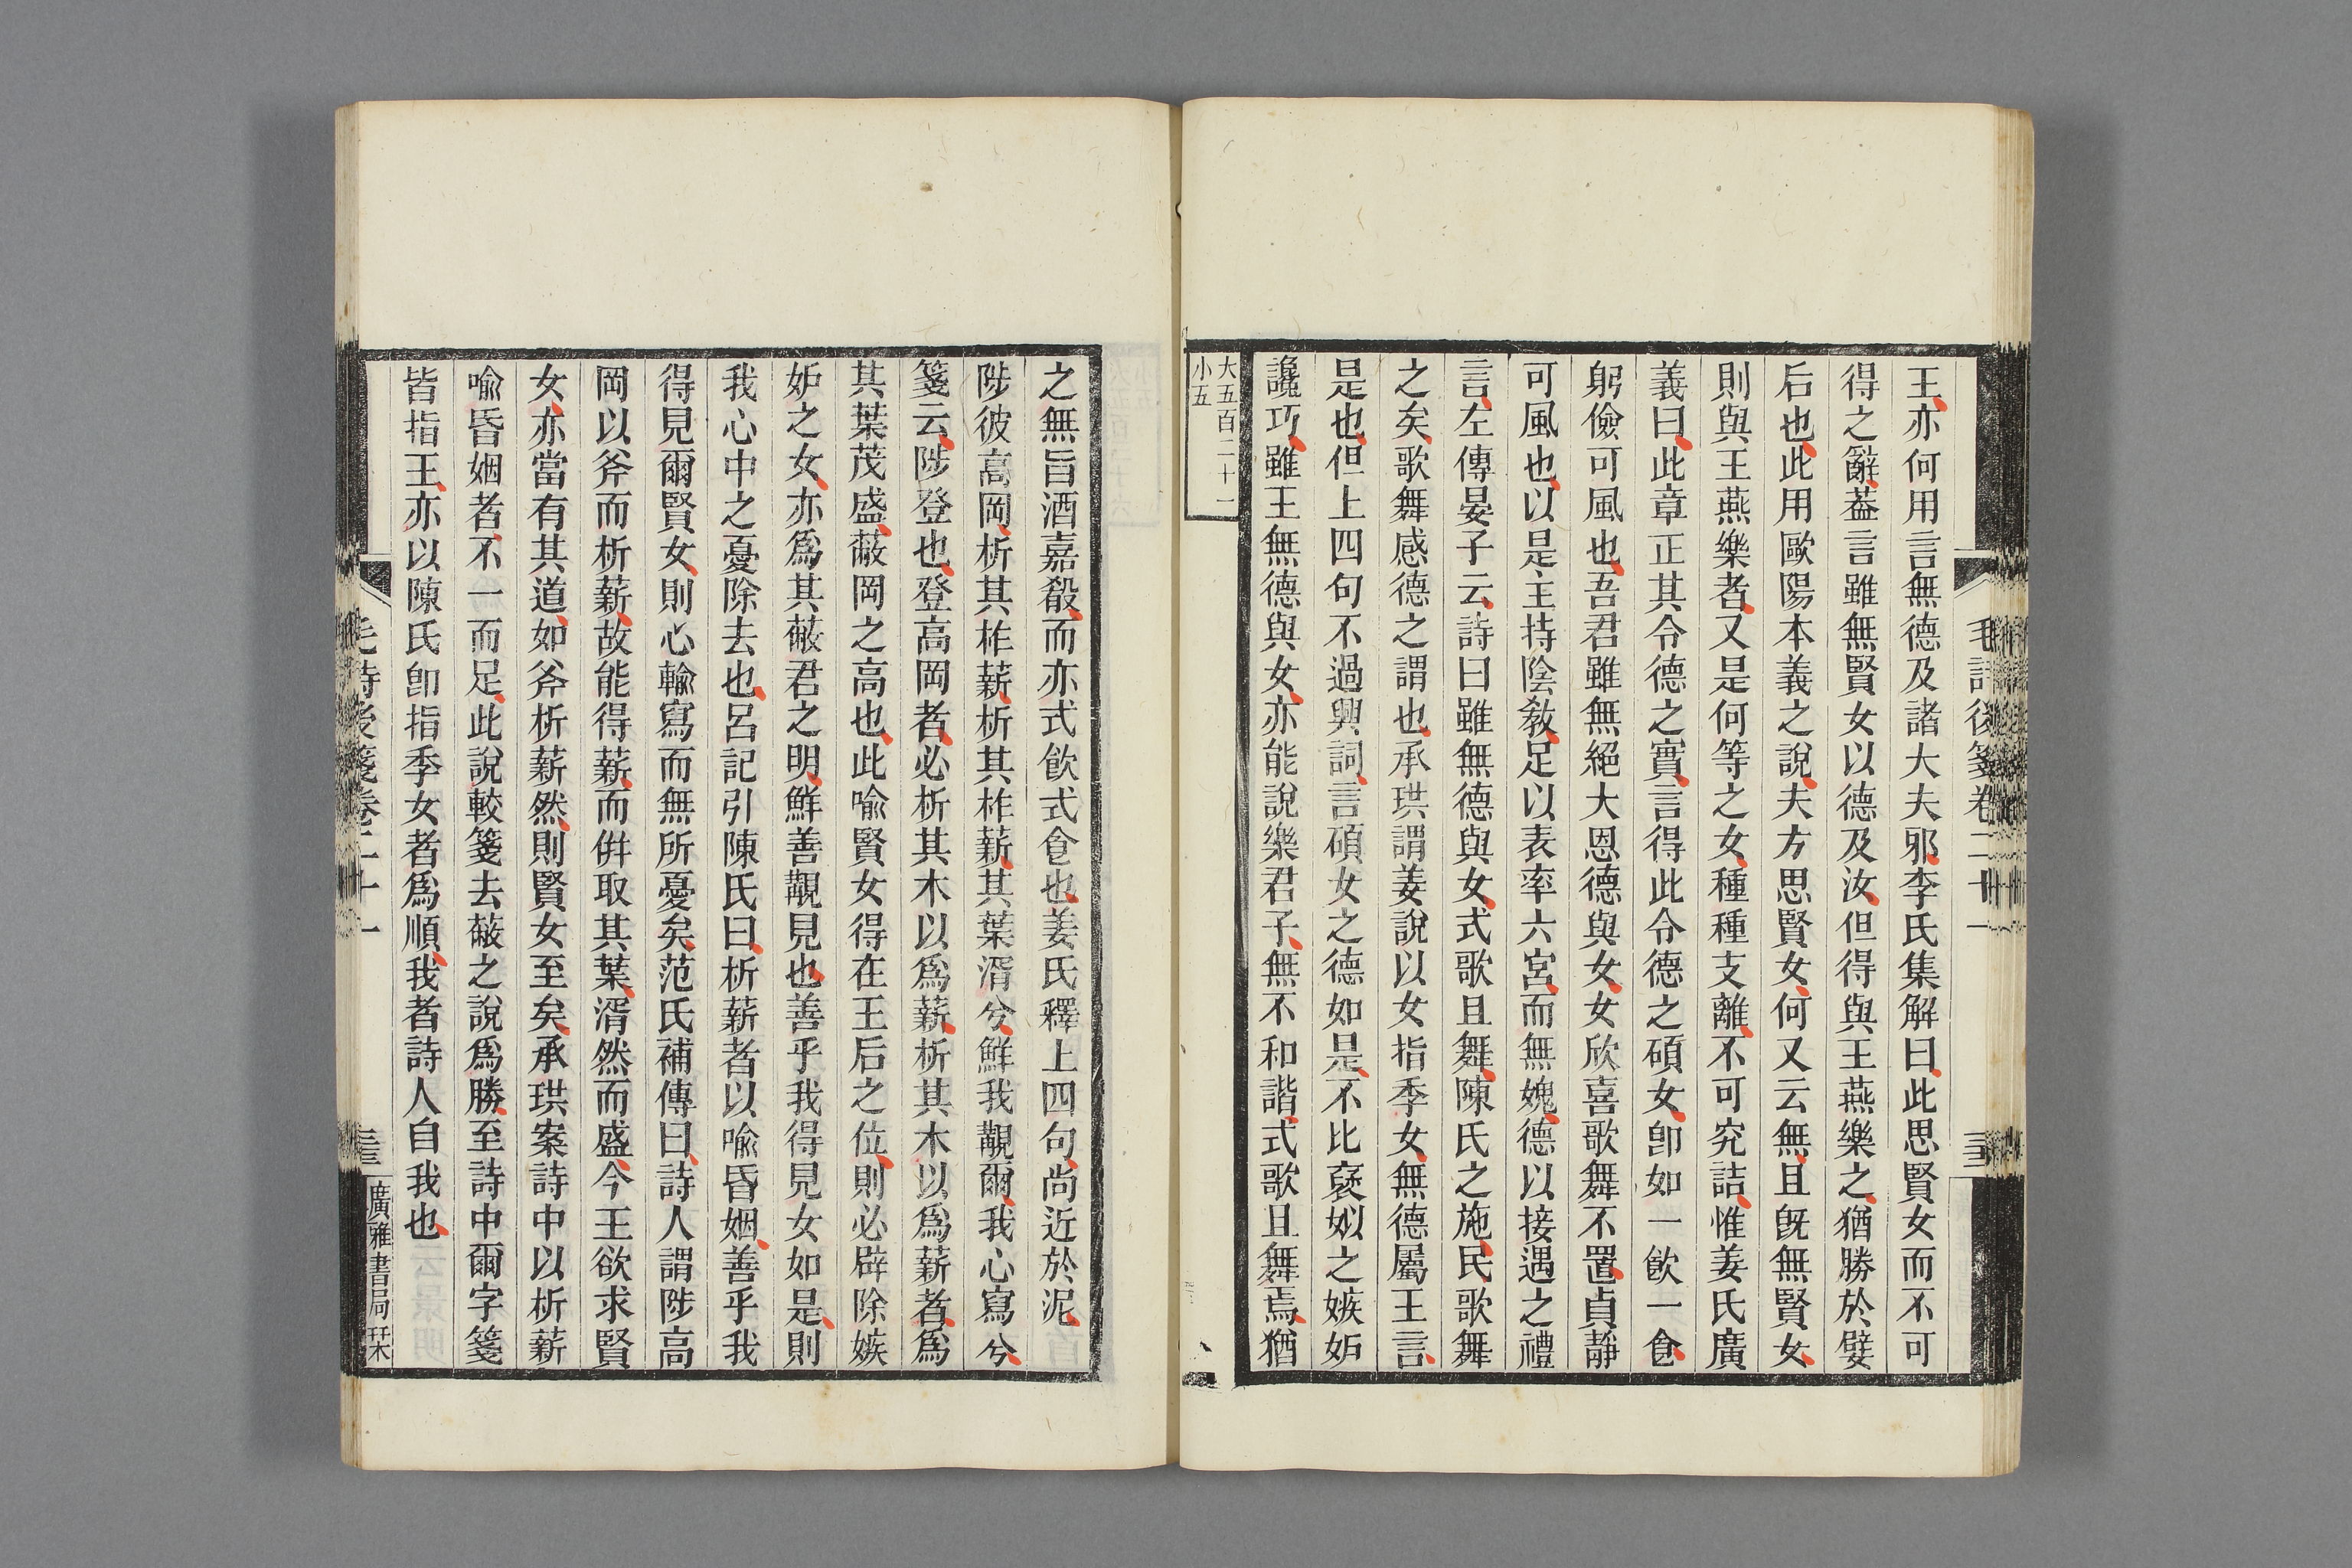 王亦何用言無德及諸大夫邪李氏集解曰此思賢女而不可
得之辭葢言雖無賢女以德及汝但得與王燕樂之猶勝於嬖
后也此用歐陽本義之說夫方思賢女何又云無且旣無賢女
則與王燕樂者又是何等之女種種支離不可究詰惟姜氏廣
義曰此章正其令德之實言得此令德之碩女卽如一飮一食
躬儉可風也吾君雖無絕大恩德與女女欣喜歌舞不置貞靜
可風也以是主持陰敎足以表率六宮而無媿德以接遇之禮
言左傳晏子云詩曰雖無德與女式歌且舞陳氏之施民歌舞
之矣歌舞感德之謂也承珙謂姜說以女指季女無德屬王言
是也但上四句不過興詞言碩女之德如是不比襃姒之嫉妒
讒巧雖王無德與女亦能說樂君子無不和諧式歌且舞焉猶
大五百二十一
小五
毛詩後箋卷二十一
之無旨酒嘉殽而亦式飮式食也姜氏釋上四句尚近於泥
陟彼高岡析其柞薪析其柞薪其葉湑兮鮮我覯爾我心寫兮
箋云陟登也登高岡者必析其木以爲薪析其木以爲薪者爲
其葉茂盛蔽岡之高也此喻賢女得在王后之位則必辟除嫉
妒之女亦爲其蔽君之明鮮善覯見也善乎我得見女如是則
我心中之憂除去也呂記引陳氏曰析薪者以喻昏姻善乎我
得見爾賢女則心輸寫而無所憂矣范氏補傳曰詩人謂陟高
岡以斧而析薪故能得薪而倂取其葉湑然而盛今王欲求賢
女亦當有其道如斧析薪然則賢女至矣承珙案詩中以析薪
喻昏姻者不一而足此說較箋去蔽之說爲勝至詩中爾字箋
皆指王亦以陳氏卽指季女者爲順我者詩人自我也
毛詩後箋卷二十一
廣雅書局栞